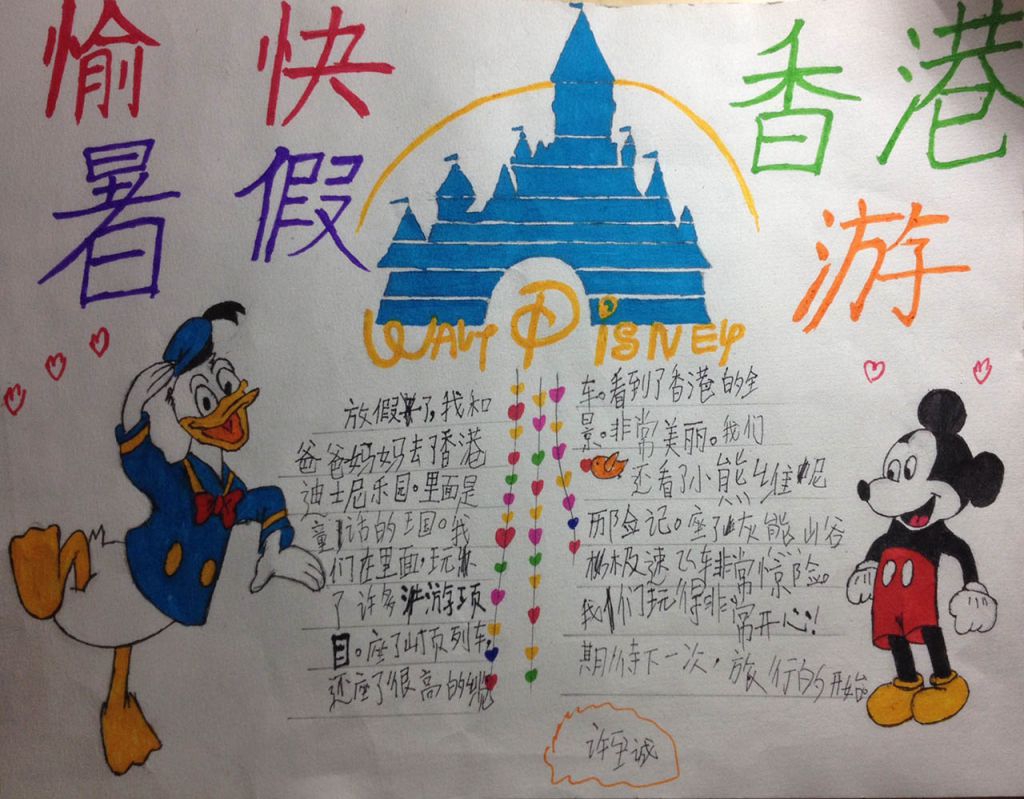 愉快
暑假
香港
游
WALT DISNEY
放假了,我和
爸爸妈妈去了香港
迪士尼乐园。里面是
童话的王国。我
们在里面玩
了许多游项
目。座了山顶列车。
还座了很高的缆
车。看到了香港的全
景。非常美丽。我们
还看了小熊维呢
历险记。座了灰熊山谷
极速飞车非常惊险。
我们玩得非常开心!
期待下一次,旅行的开始
许至诚